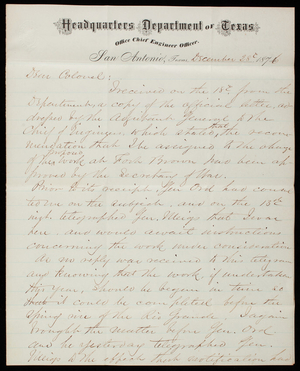 Headquarters Department of Texas
Office Chief Engineer Officer.
San Antonio, Texas December 23d 1876
Dear Colonel:
I received on the 18th from the
Department, a copy of the official letter ad-
dressed by the Adjutant General to the
Chief of Engineers, which states that the recom-
mendation that I be assigned to the charge
of the proposed work at Fort Brown had been ap-
proved by the Secretary of War.
Prior to its receipt, Gen Ord had consul-
ted me on the subject, and on the 15th
inst. telegraphed Gen. Meigs that I was
here and would await instructions
concerning the work under consideration
As no reply was received to this telegram
and knowing that the work if undertaken
this year, should be begun in time so
that it could be completed before the
spring rise of the Rio Grande, I again
brought the matter before Gen. Ord
and he yesterday telegraphed Gen.
Meigs to the effect that notification had